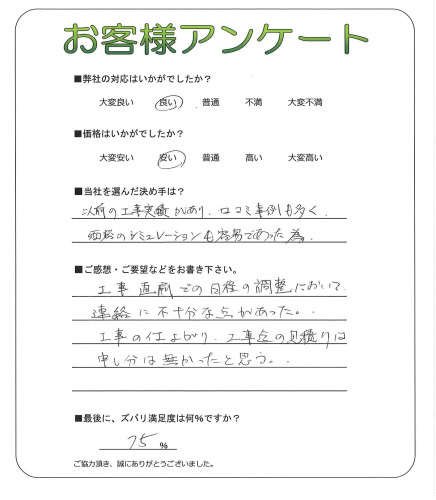 お客様アンケート
■弊社の対応はいかがでしたか？
大変良い 良い 普通 不満 大変不満
■価格はいかがでしたか？
大変安い 安い 普通 高い 大変高い
■当社を選んだ決め手は？
以前の工事実績があり、口コミ事例も多く、
価格のシミュレーションも容易であった為。
■ご感想・ご要望などをお書き下さい。
工事直前での日程の調整において、
連絡に不十分な点があった。
工事の仕上がり、工事迄の見積りは
申し分は無かったと思う。
■最後に、ズバリ満足度は何％ですか？
75 %
ご協力頂き、誠にありがとうございました。